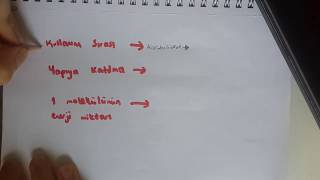 Kullanım Sırası →
Yapıya Katılma →
1 molekülünün →
Enerji miktarı